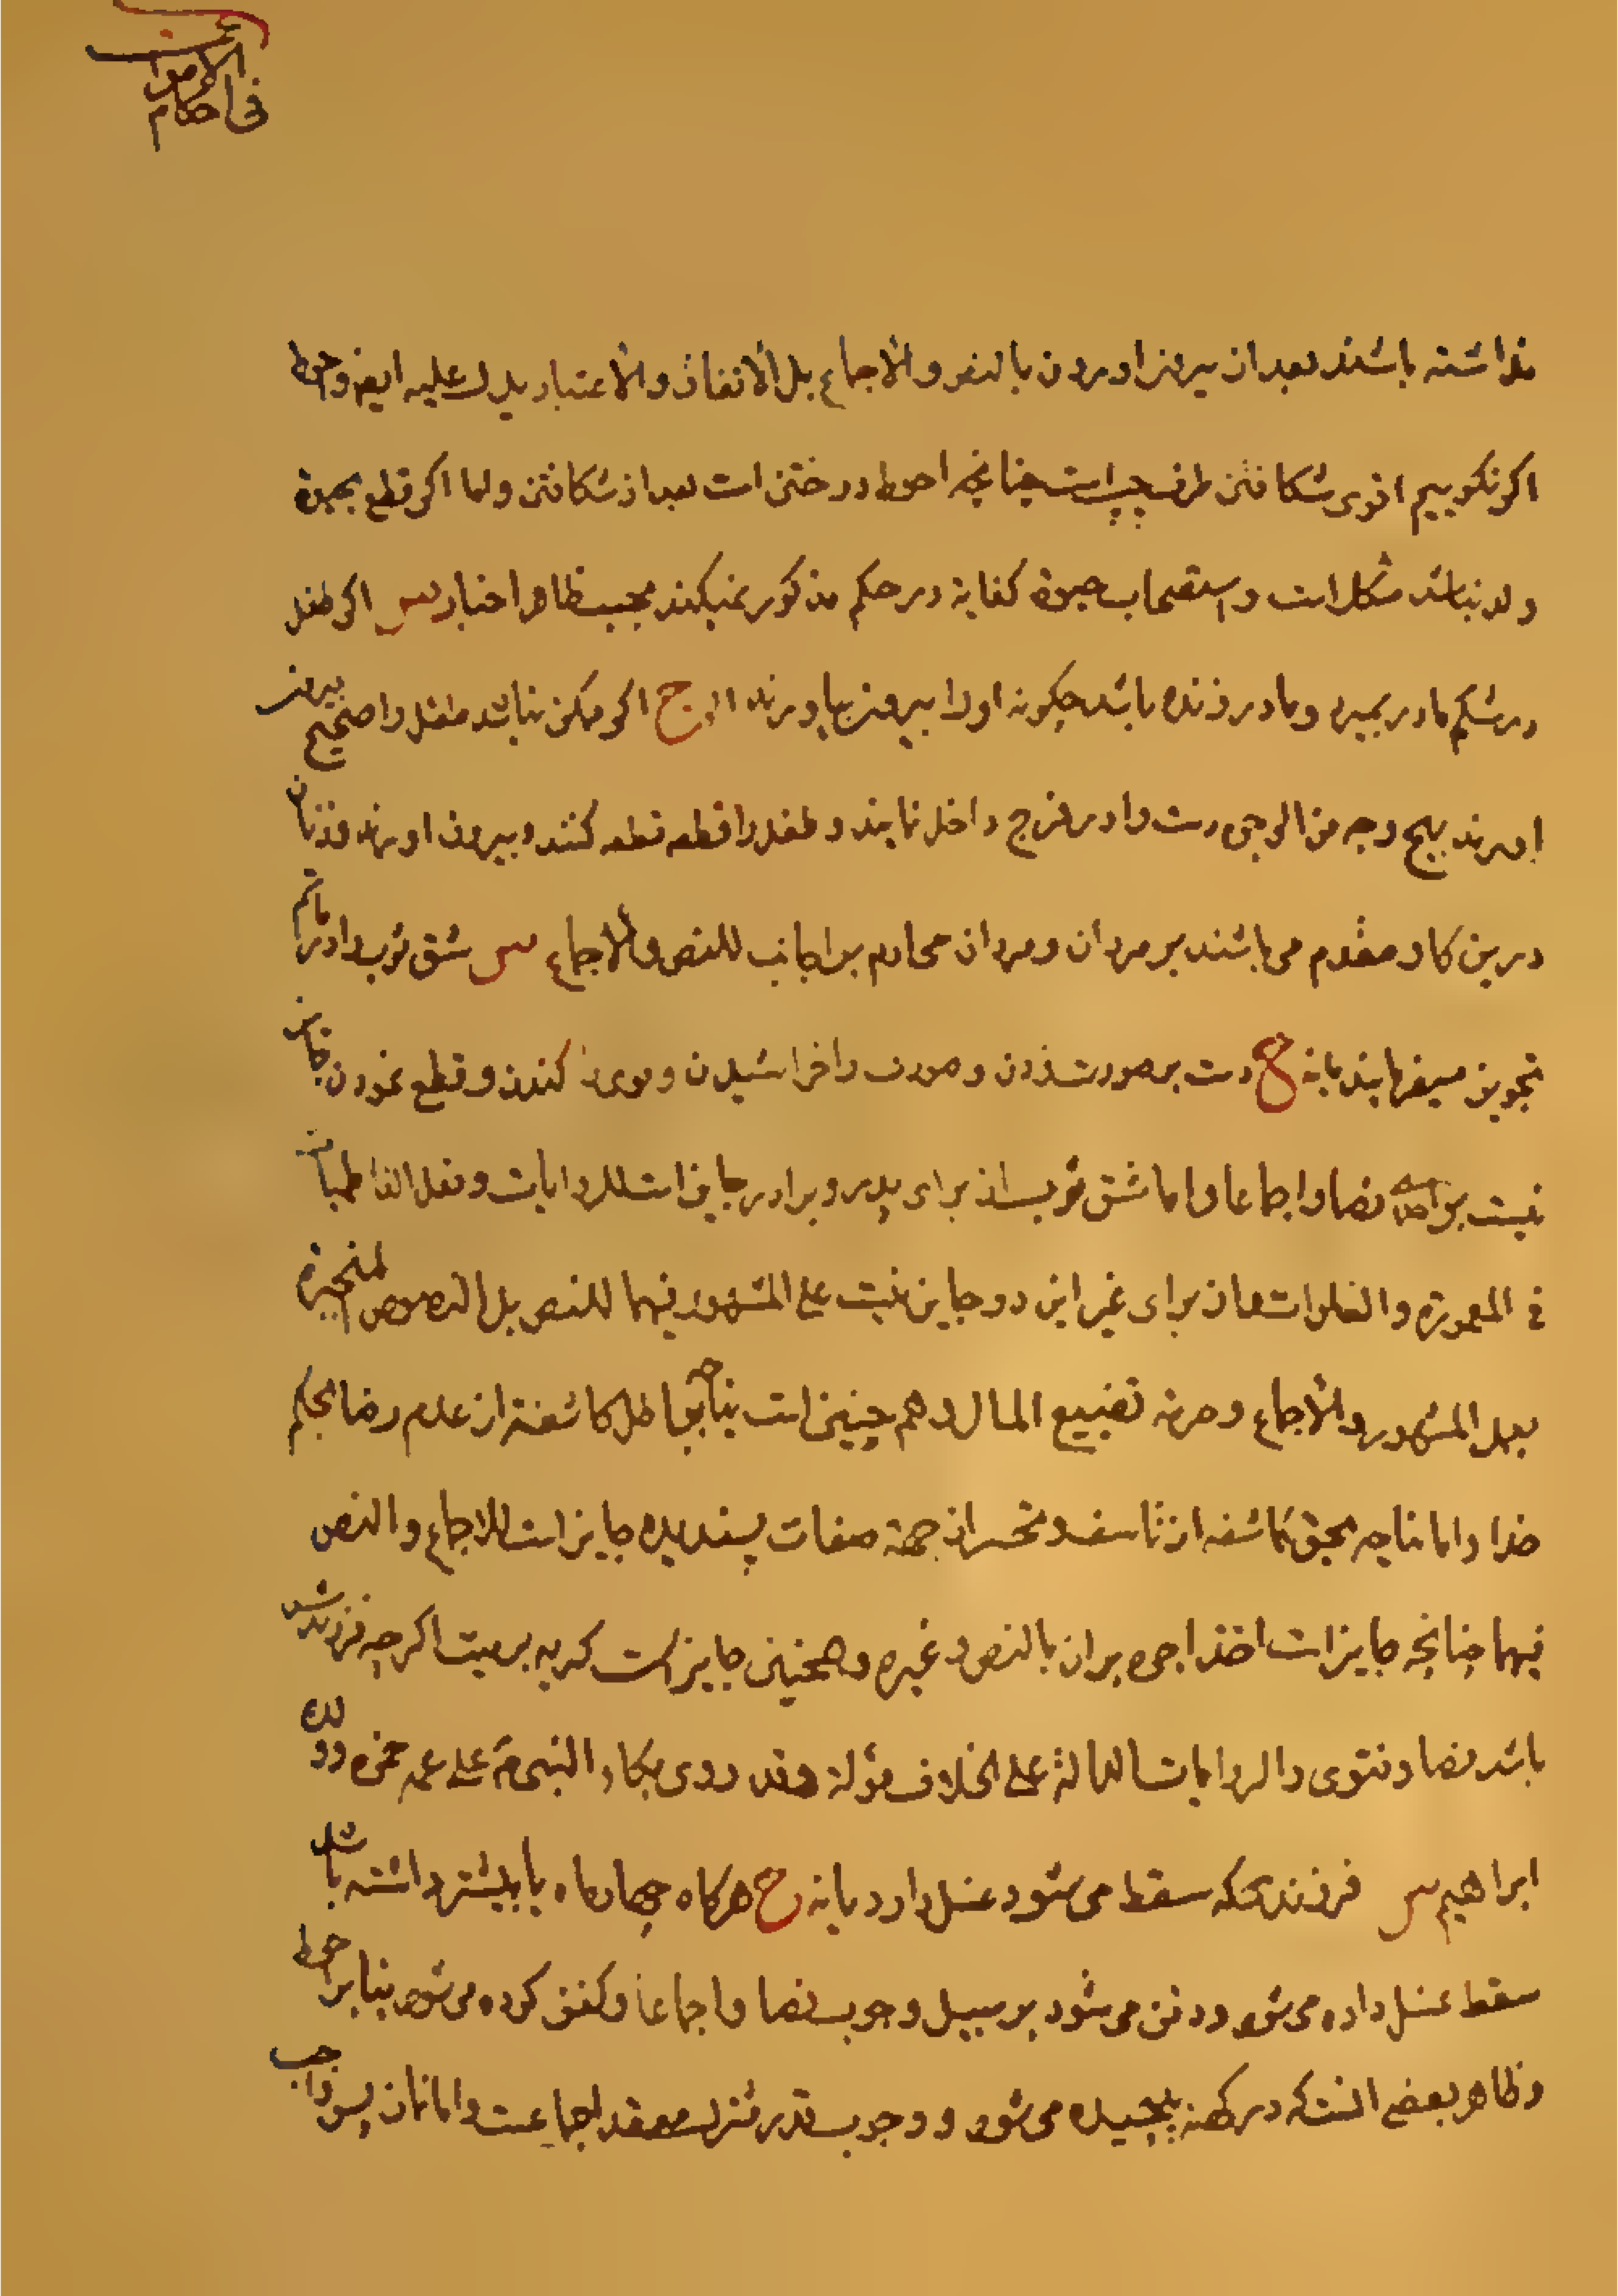 فی احکام الاموات
نداشته باشند بعد از بیرون اوردن بالنص والاجماع بل الاتفاق والاعتبار یدل علیه ایضا واحوط
اکر نکوییم اقوی شکافتن طرف چپ است چنانچه احوط دوختن است بعد از شکافتن واما اکر قطع بحیوة
ولد نباشد مشکل است واستصحاب حیوة کفایة در حکم مذکور نمیکند بحسب ظاهر اخبار س اکر طفل
در شکم مادر بمیرد ومادر زنده باشد چکونه اورا بیرون بیاورند ج اکر ممکن نباشد طفل را صحیح بیرون
اورند بهیچ وجه من الوجوه دست را در فرج داخل نمایند وطفل را قطعه قطعه کنند وبیرون اورند وزنان
درین کار مقدم می باشند بر مردان ومردان محارم بر اجانب للنص والاجماع س شق ثوب را در ماتم
تجویز میفرمایند یا نه ج دست بر صورت زدن وصورت را خراشیدن وموی را کندن وقطع نمودن جایز
نیست بر احدی نصا واجماعا واما شق ثوب از برای پدر وبرادر جایز است للروایات وفعل الفاطمیات
فی المعمورة والفلوات واز برای غیر این دو جایز نیست علی المشهور فیهما للنص بل النصوص المنجبرة
بعمل المشهور والاجماع وحرمة تضییع المال وهم چنین است نیاحة بباطل کاشفة از عدم رضا بحکم
خدا واما نیاحه بحق کاشفه از تاسف وتحسر از جهة صفات پسندیده جایز است للاجماع والنص
فیهما چنانچه جایز است اخذ اجره بر ان بالنص وغیره وهمچنین جایز است کریه بر میت اکرچه فرزندش
باشد نصا وفتوی والروایات الدالة علی الخلاف مؤلة وقد روی بکاء النبی ص علی عمه حمزه وولده
ابراهیم س فرزندیکه سقط می شود غسل دارد یا نه ج هرکاه چهار ماه یا بیشتر داشته باشد
سقط غسل داده می شود ودفن می شود بر سبیل وجوب نصا واجماعا وکفن کرده می شود بنا بر احوط
وظاهر بعضی انست که در کهنه پیچیده می شود ووجوب قدر مشترک معقد اجماعست واما نماز پس واجب